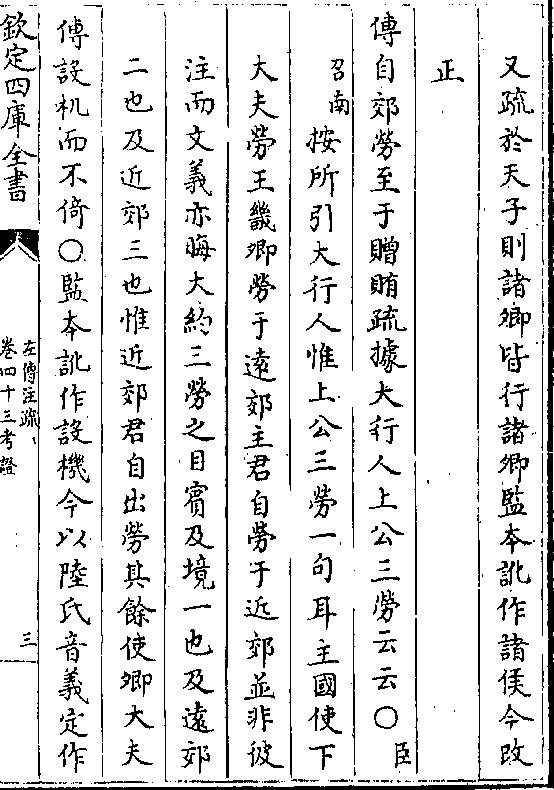 又疏於天子則諸卿皆行諸卿監本訛作諸侯今改
正
傳自郊勞至于贈賄疏據大行人上公三勞云云〇臣
召南按所引大行人惟上公三勞一句耳主國使下
大夫勞王畿卿勞于遠郊主君自勞于近郊並非彼
注而文義亦晦大約三勞之目賓及境一也及遠郊
二也及近郊三也惟近郊君自出勞其餘使卿大夫
傳設机而不倚〇監本訛作設機今以陸氏音義定作
欽定四庫全書
左傳注疏
卷四十三考證
三